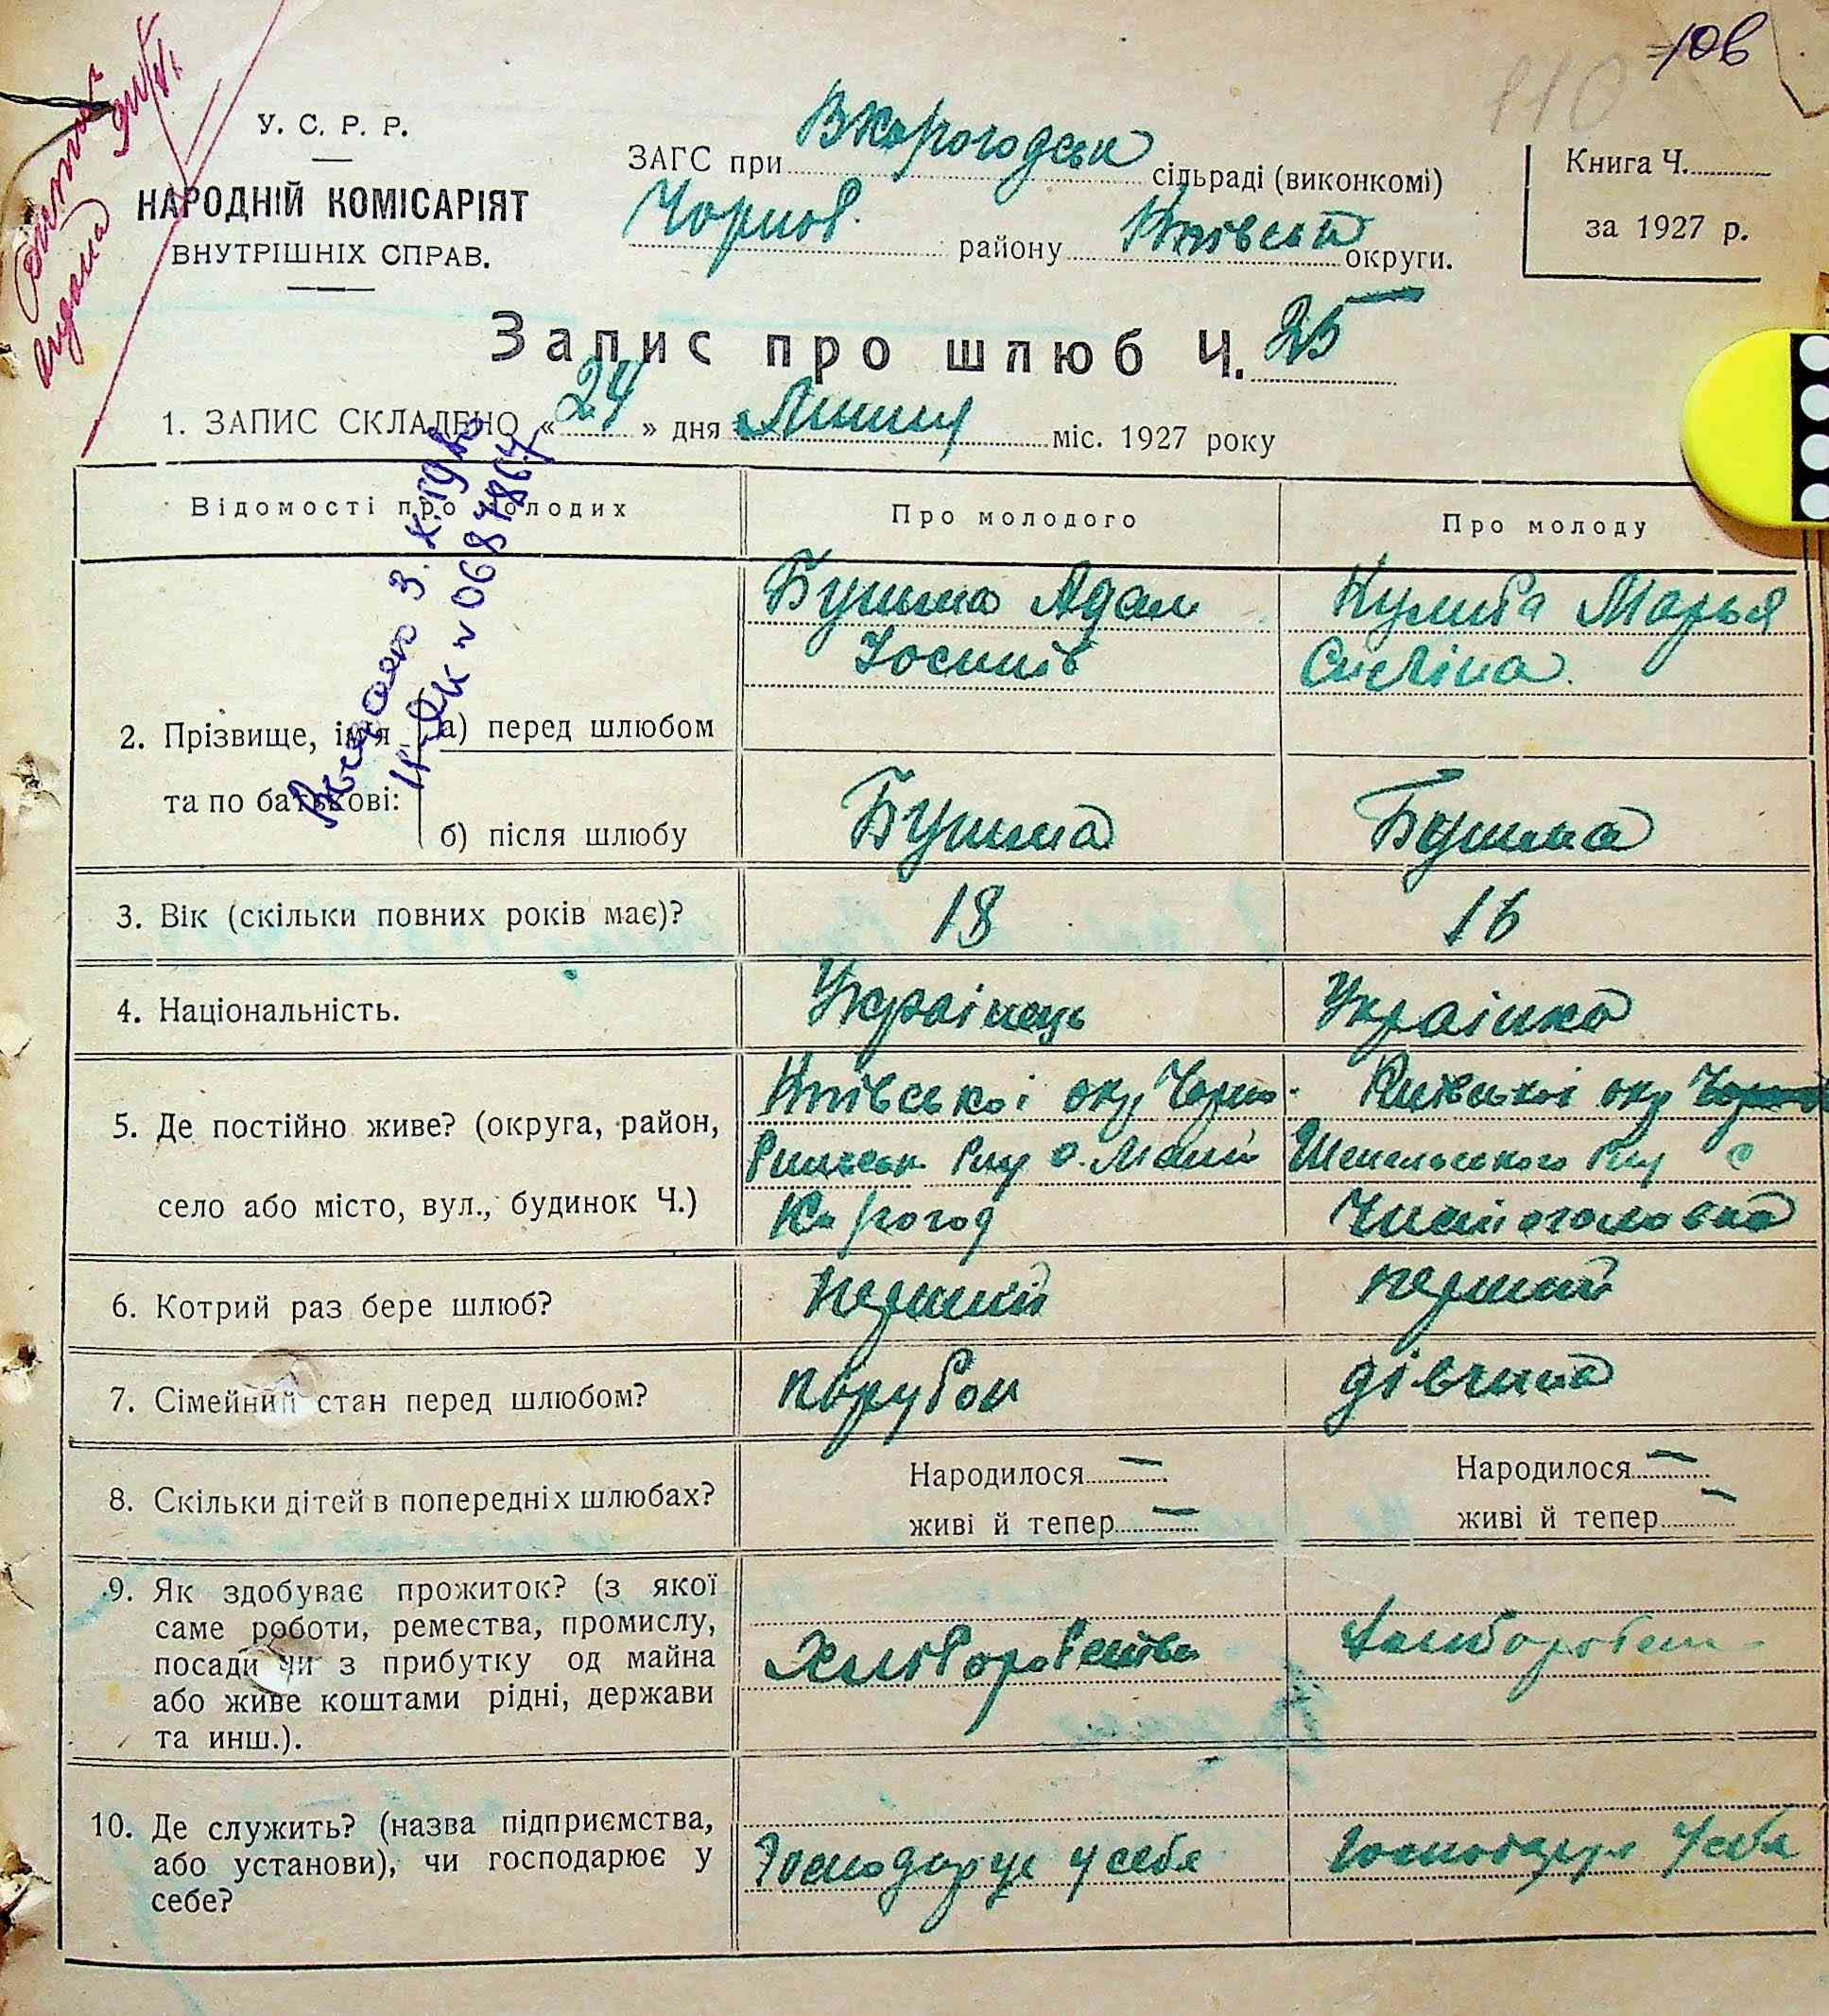 106
110
У. С. Р. Р.
НАРОДНІЙ КОМІСАРІЯТ
ВНУТРІШНІХ СПРАВ.
ЗАГС при В Карогодськ сільраді (виконкомі)
Чорноб. району Київськ округи.
Книга Ч.
за 1927 р.
Запис про шлюб Ч. 25
1. ЗАПИС СКЛАДЕНО «24» дня Липня міс. 1927 року
Відомості про молодих
Про молодого
Про молоду
2. Прізвище, ім'я та по батькові:
а) перед шлюбом
Бушма Адам
Іосипів
Кулиба Марья
б) після шлюбу
Бушма
Бушма
3. Вік (скільки повних років має)?
18
16
4. Національність.
Украінець
Украінка
5. Де постійно живе? (округа, район,
село або місто, вул., будинок Ч.)
Київськоі окр Чорно-
Малий
Карогод
Київськоі окр
Шепельського с
6. Котрий раз бере шлюб?
перший
перший
7. Сімейний стан перед шлюбом?
парубок
дівчина
8. Скільки дітей в попередніх шлюбах?
Народилося —
живі й тепер —
Народилося —
живі й тепер —
9. Як здобуває прожиток? (з якої
саме роботи, ремества, промислу,
посади чи з прибутку од майна
або живе коштами рідні, держави
та инш.).
Хліборобство
10. Де служить? (назва підприємства,
або установи), чи господарює у
себе?
Господарує у себе
Господарує у себе